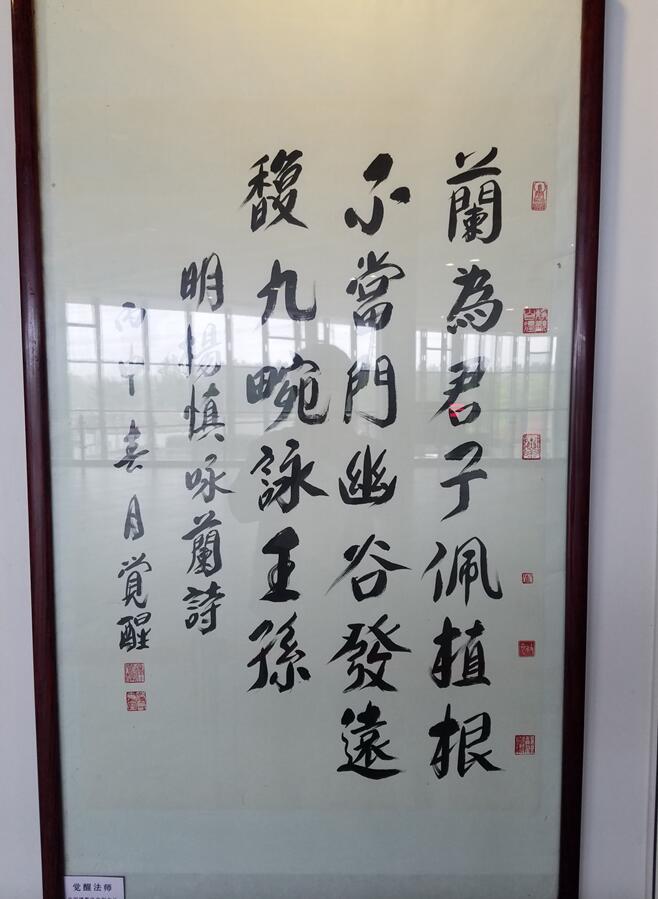 蘭為君子佩植根
不當門幽谷發遠
馥九畹詠王孫
明楊慎咏蘭詩
丙申春月覺醒
觉醒法师